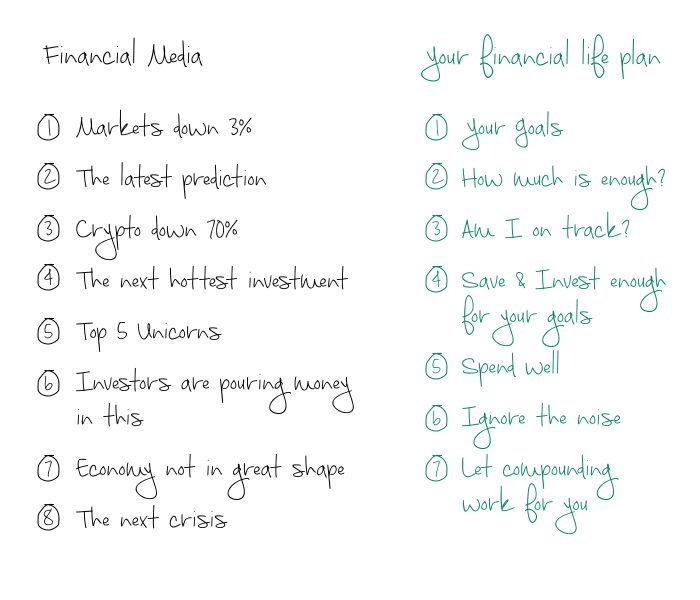 Financial Media
① Markets down 3%
② The latest prediction
③ Crypto down 70%
④ The next hottest investment
⑤ Top 5 Unicorns
⑥ Investors are pouring money
in this
⑦ Economy not in great shape
⑧ The next crisis
Your financial life plan
① Your goals
② How much is enough?
③ Am I on track?
④ Save & Invest enough
for your goals
⑤ Spend well
⑥ Ignore the noise
⑦ Let compounding
work for you